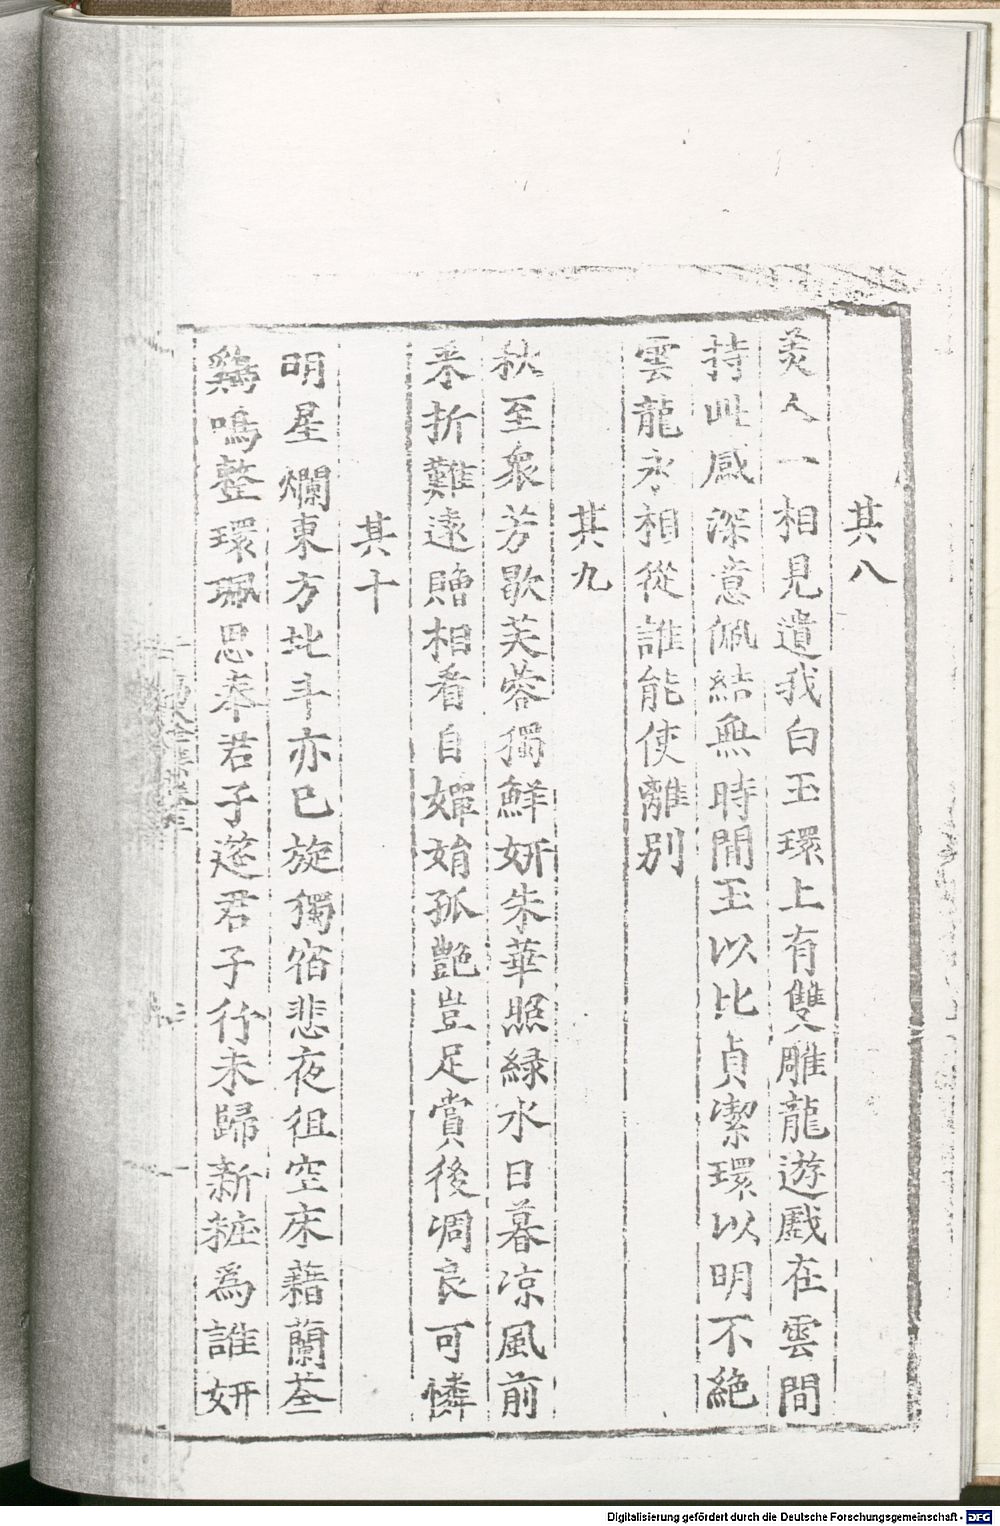 其八
美人一相見遺我白玉環上有雙雕龍遊戲在雲間
持此感深意佩結無時閒玉以比貞潔環以明不絶
雲龍永相從誰能使離別
其九
秋至衆芳歇芙蓉獨鮮妍朱華照緑水日暮凉風前
采折難遠贈相看自嬋媚孤艷豈足賞後凋良可憐
其十
明星爛東方北斗亦已旋獨宿悲夜徂空床藉蘭荃
鷄鳴整環珮思奉君子筵君子行未歸新粧為誰妍
Digitalisierung gefördert durch die Deutsche Forschungsgemeinschaft - DFG